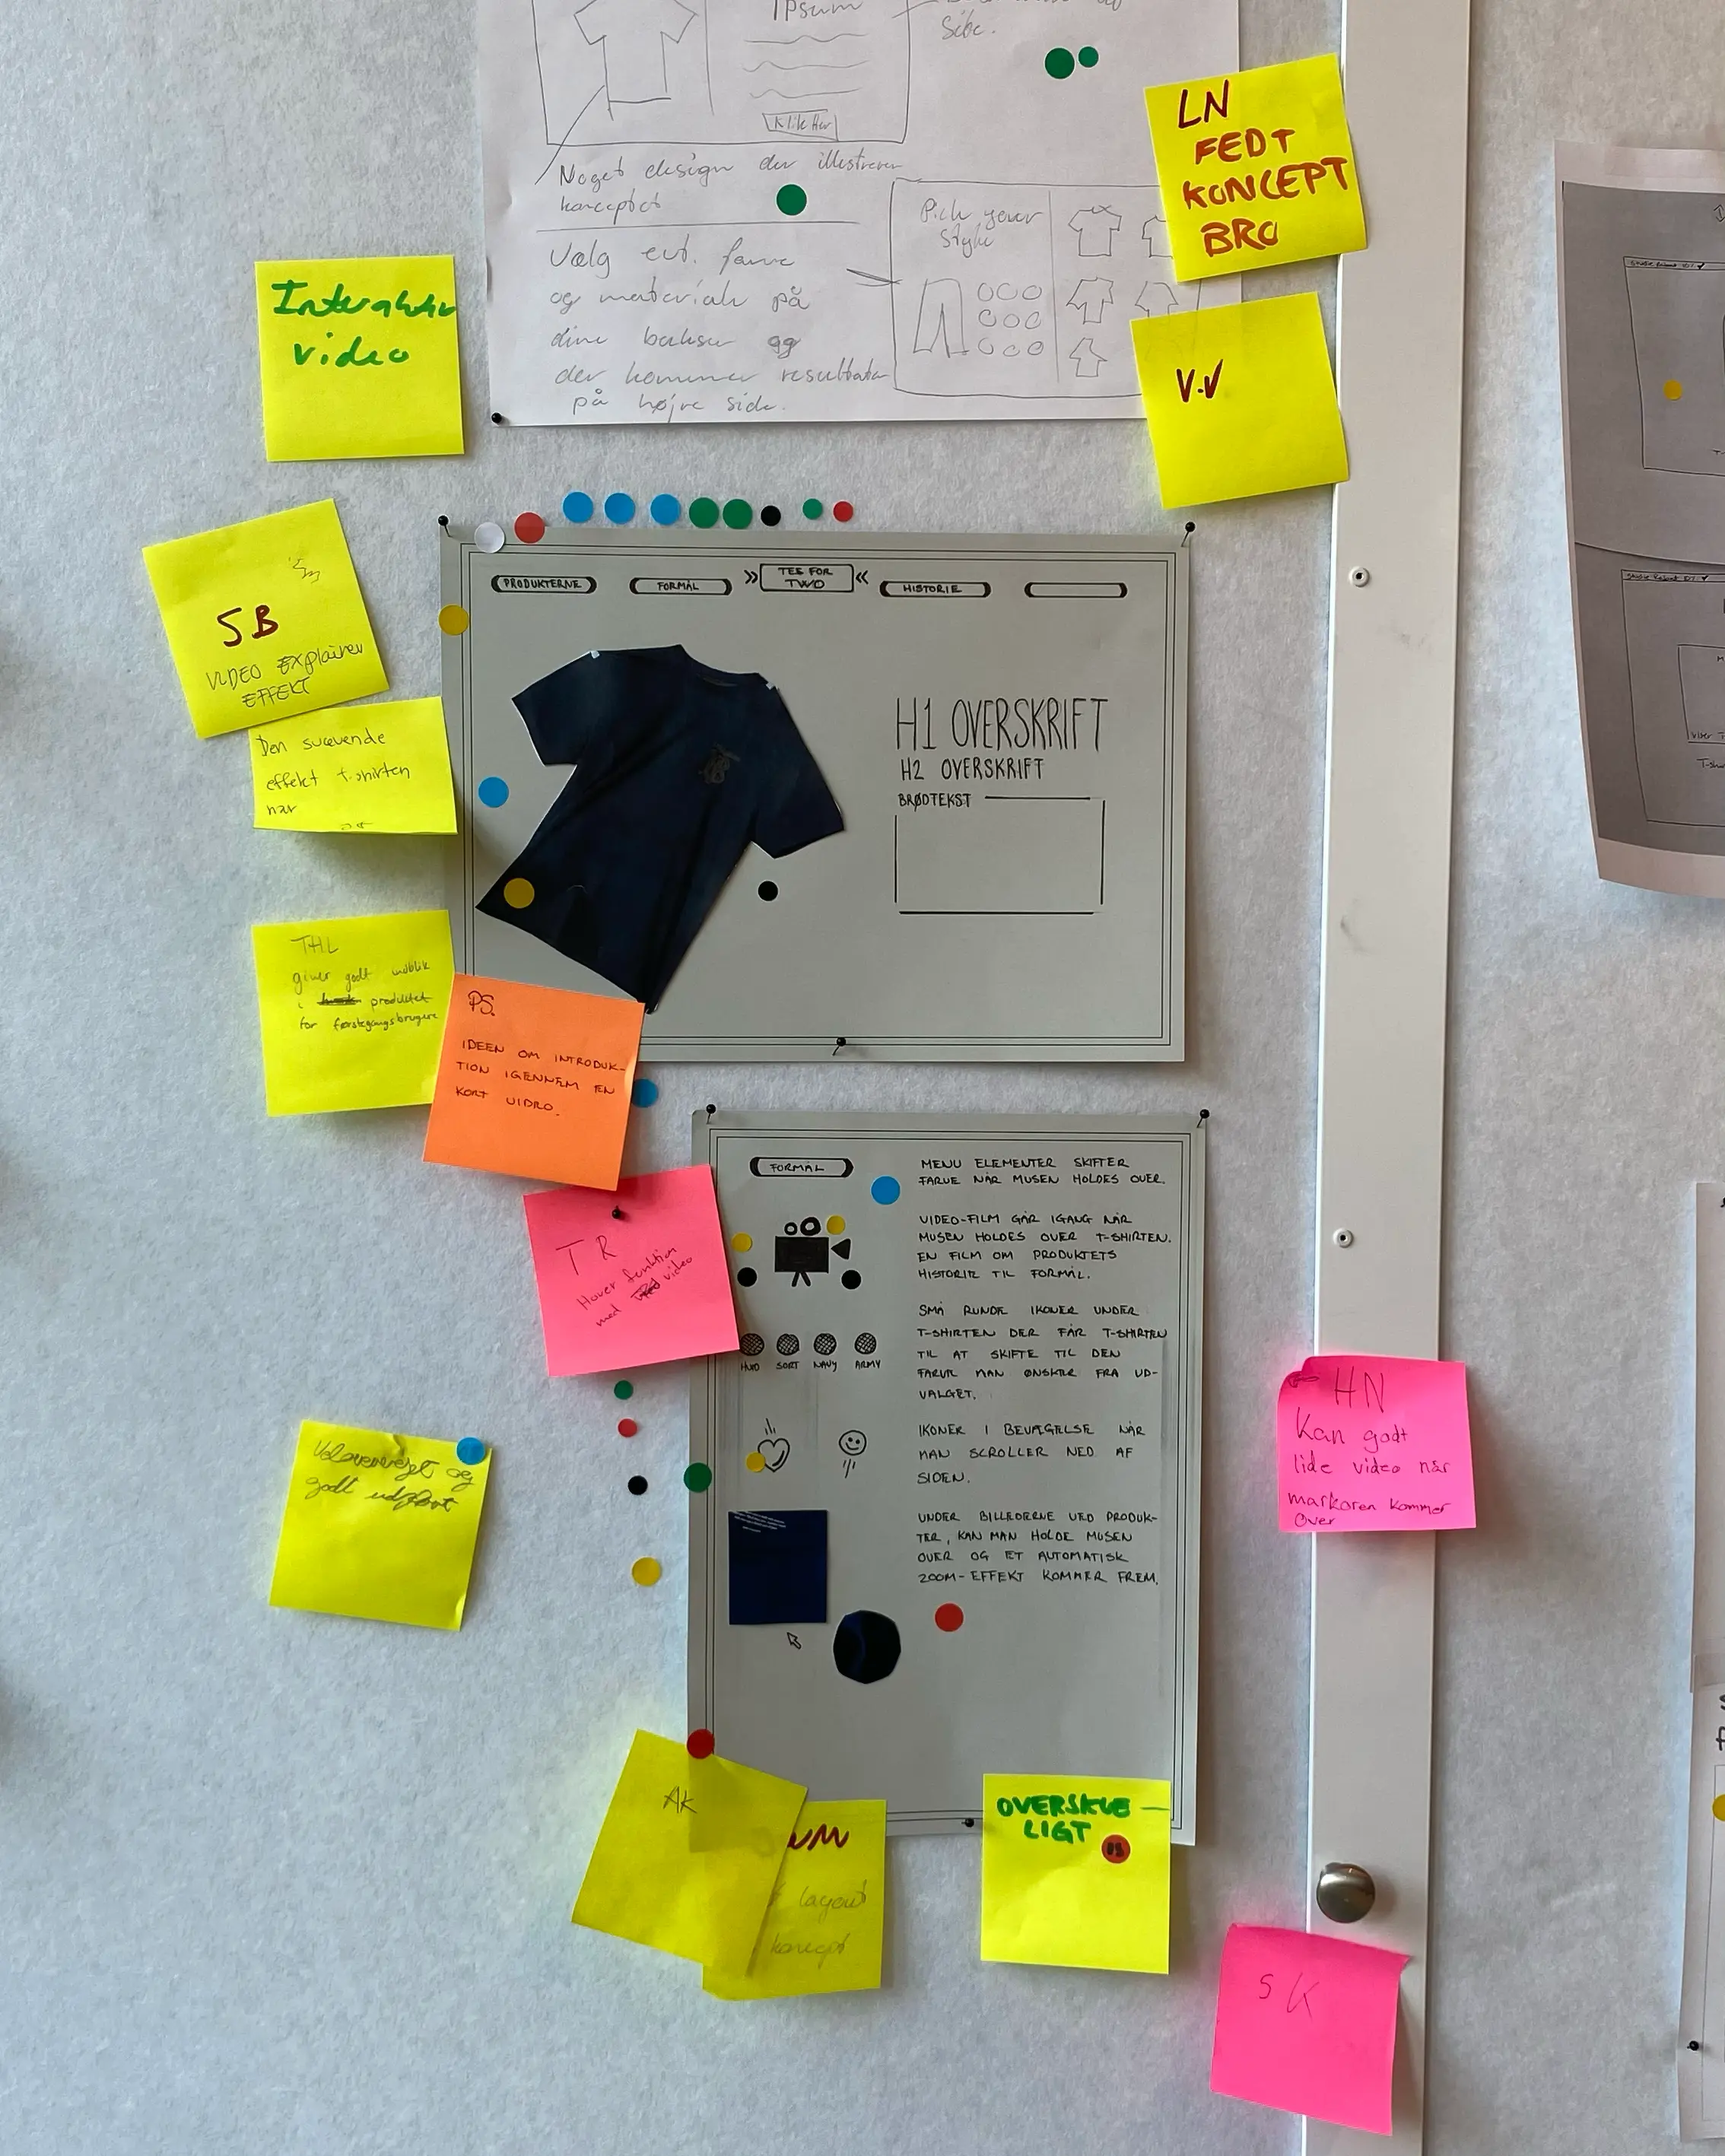 Ipsum
Side.
Klik Her
Noget design der illustrerer
konceptet
Pick your
Style
Vælg evt. farve
og materiale på
dine bukser og
der kommer resultatet
på højre side.
LN
FEDT
KONCEPT
BRO
V.V
Interaktiv
video
SB
VIDEO EXplainer
EFFEKT
Den svævende
effekt t-shirten
har
PRODUKTERNE
FORMÅL
TEE FOR
TWO
HISTORIE
H1 OVERSKRIFT
H2 OVERSKRIFT
BRØDTEKST
THL
giver godt indblik
i produktet
for førstegangsbrugere
PS.
IDEEN OM INTRODUK-
TION IGENNEM EN
KORT VIDEO.
TR
Hover funktion
med video
FORMÅL
MENU ELEMENTER SKIFTER
FARVE NÅR MUSEN HOLDES OVER.
VIDEO-FILM GÅR IGANG NÅR
MUSEN HOLDES OVER T-SHIRTEN.
EN FILM OM PRODUKTETS
HISTORIE TIL FORMÅL.
SMÅ RUNDE IKONER UNDER
T-SHIRTEN DER FÅR T-SHIRTEN
TIL AT SKIFTE TIL DEN
FARVE MAN ØNSKER FRA UD-
VALGET.
HVID SORT NAVY ARMY
IKONER I BEVÆGELSE NÅR
MAN SCROLLER NED AF
SIDEN.
UNDER BILLEDERNE VED PRODUK-
TER, KAN MAN HOLDE MUSEN
OVER OG ET AUTOMATISK
ZOOM-EFFEKT KOMMER FREM.
HN
Kan godt
lide video når
markøren kommer
over
Velovervejet og
godt udført
AK
layout
koncept
OVERSKUE-
LIGT
SK